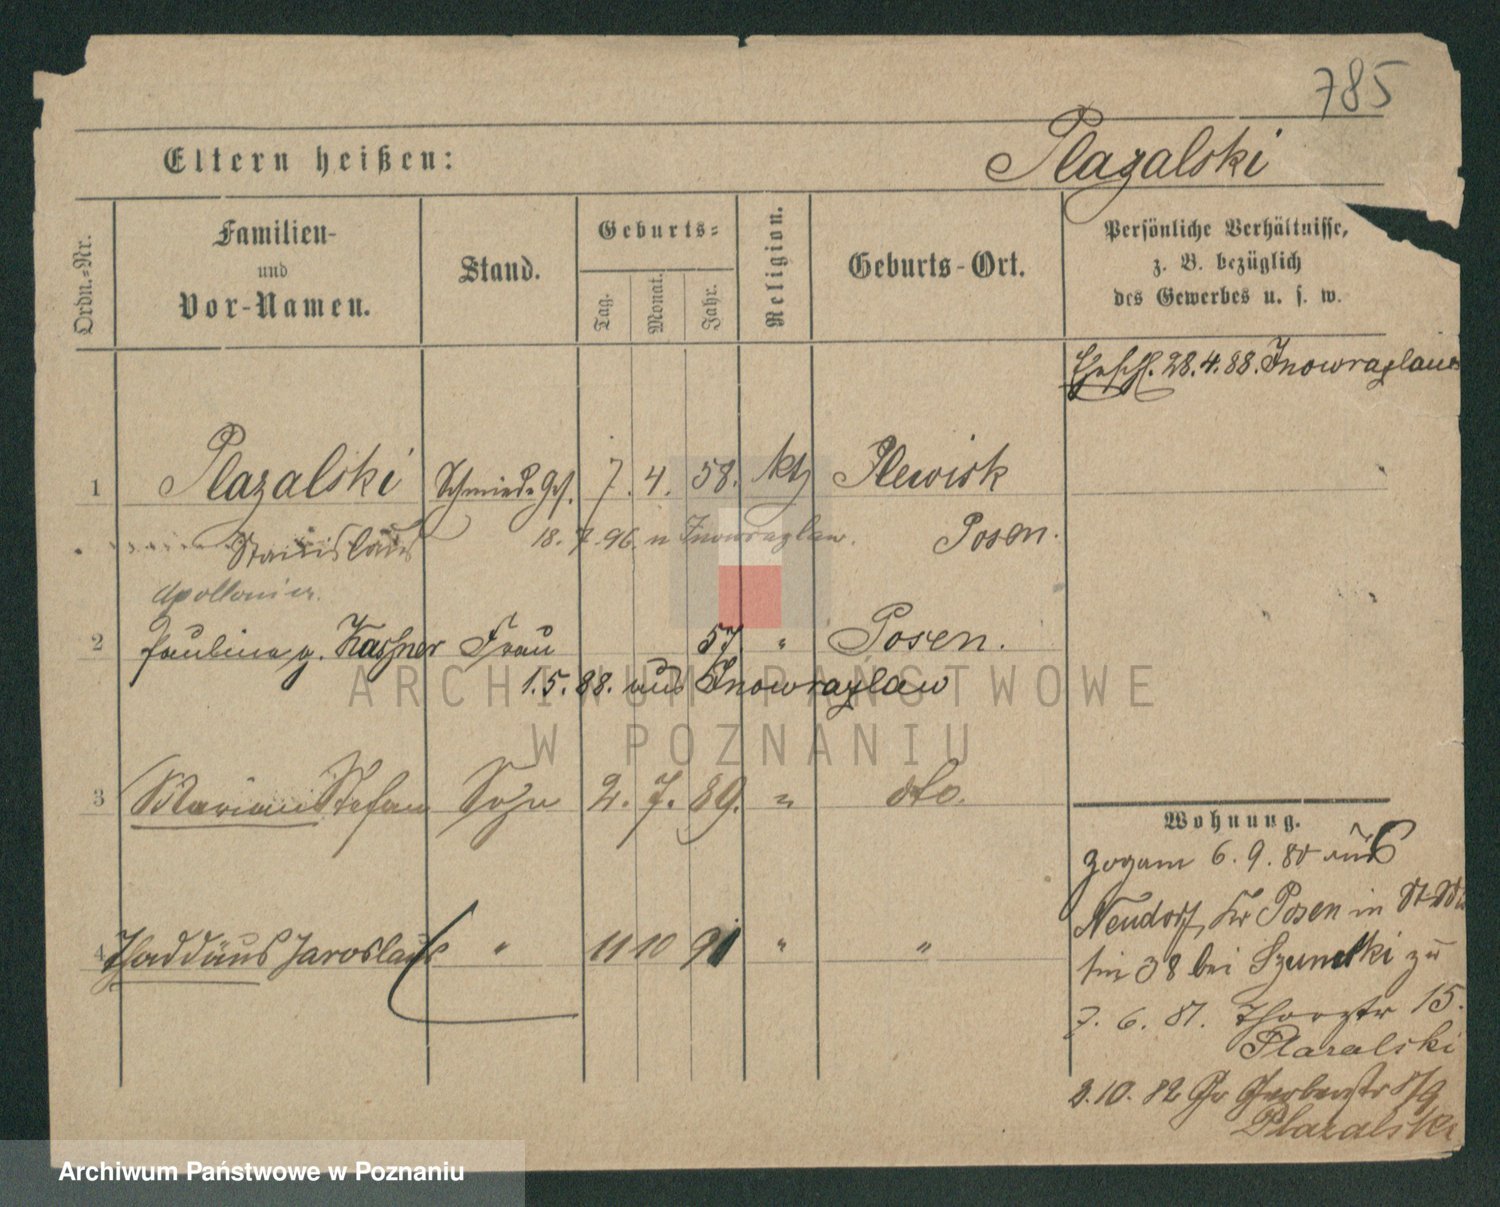 785
Eltern heißen:
Plazalski
Ordn.-Nr.
Familien-
und
Vor-Namen.
Stand.
Geburts-
Tag.
Monat.
Jahr.
Religion.
Geburts-Ort.
Persönliche Verhältnisse,
z. B. bezüglich
des Gewerbes u. s. w.
Eheschl. 28.4.88. Inowrazlaw
1 Plazalski Schmied-Ges. 7. 4. 58. kth Plewisk
Stanislaus 18. 7. 96. n Inowrazlaw. Posen.
Apollonia
2 Paulina g. Kashner Frau 57 " Posen.
1.5.88. aus Inowrazlaw
3 Marian Stefan Sohn 2. 7. 89. " dto.
4 Thaddäus Jaroslaus " 11 10 91 " "
Wohnung.
zogam 6. 9. 80 aus
Neudorf, Kr Posen in St
tin 38 bei zu
7. 6. 81. Thorstr 15.
Plazalski
2.10. 82 Gr Gerberstr 8/9
Plazalski
ARCHIWUM PAŃSTWOWE
W POZNANIU
Archiwum Państwowe w Poznaniu